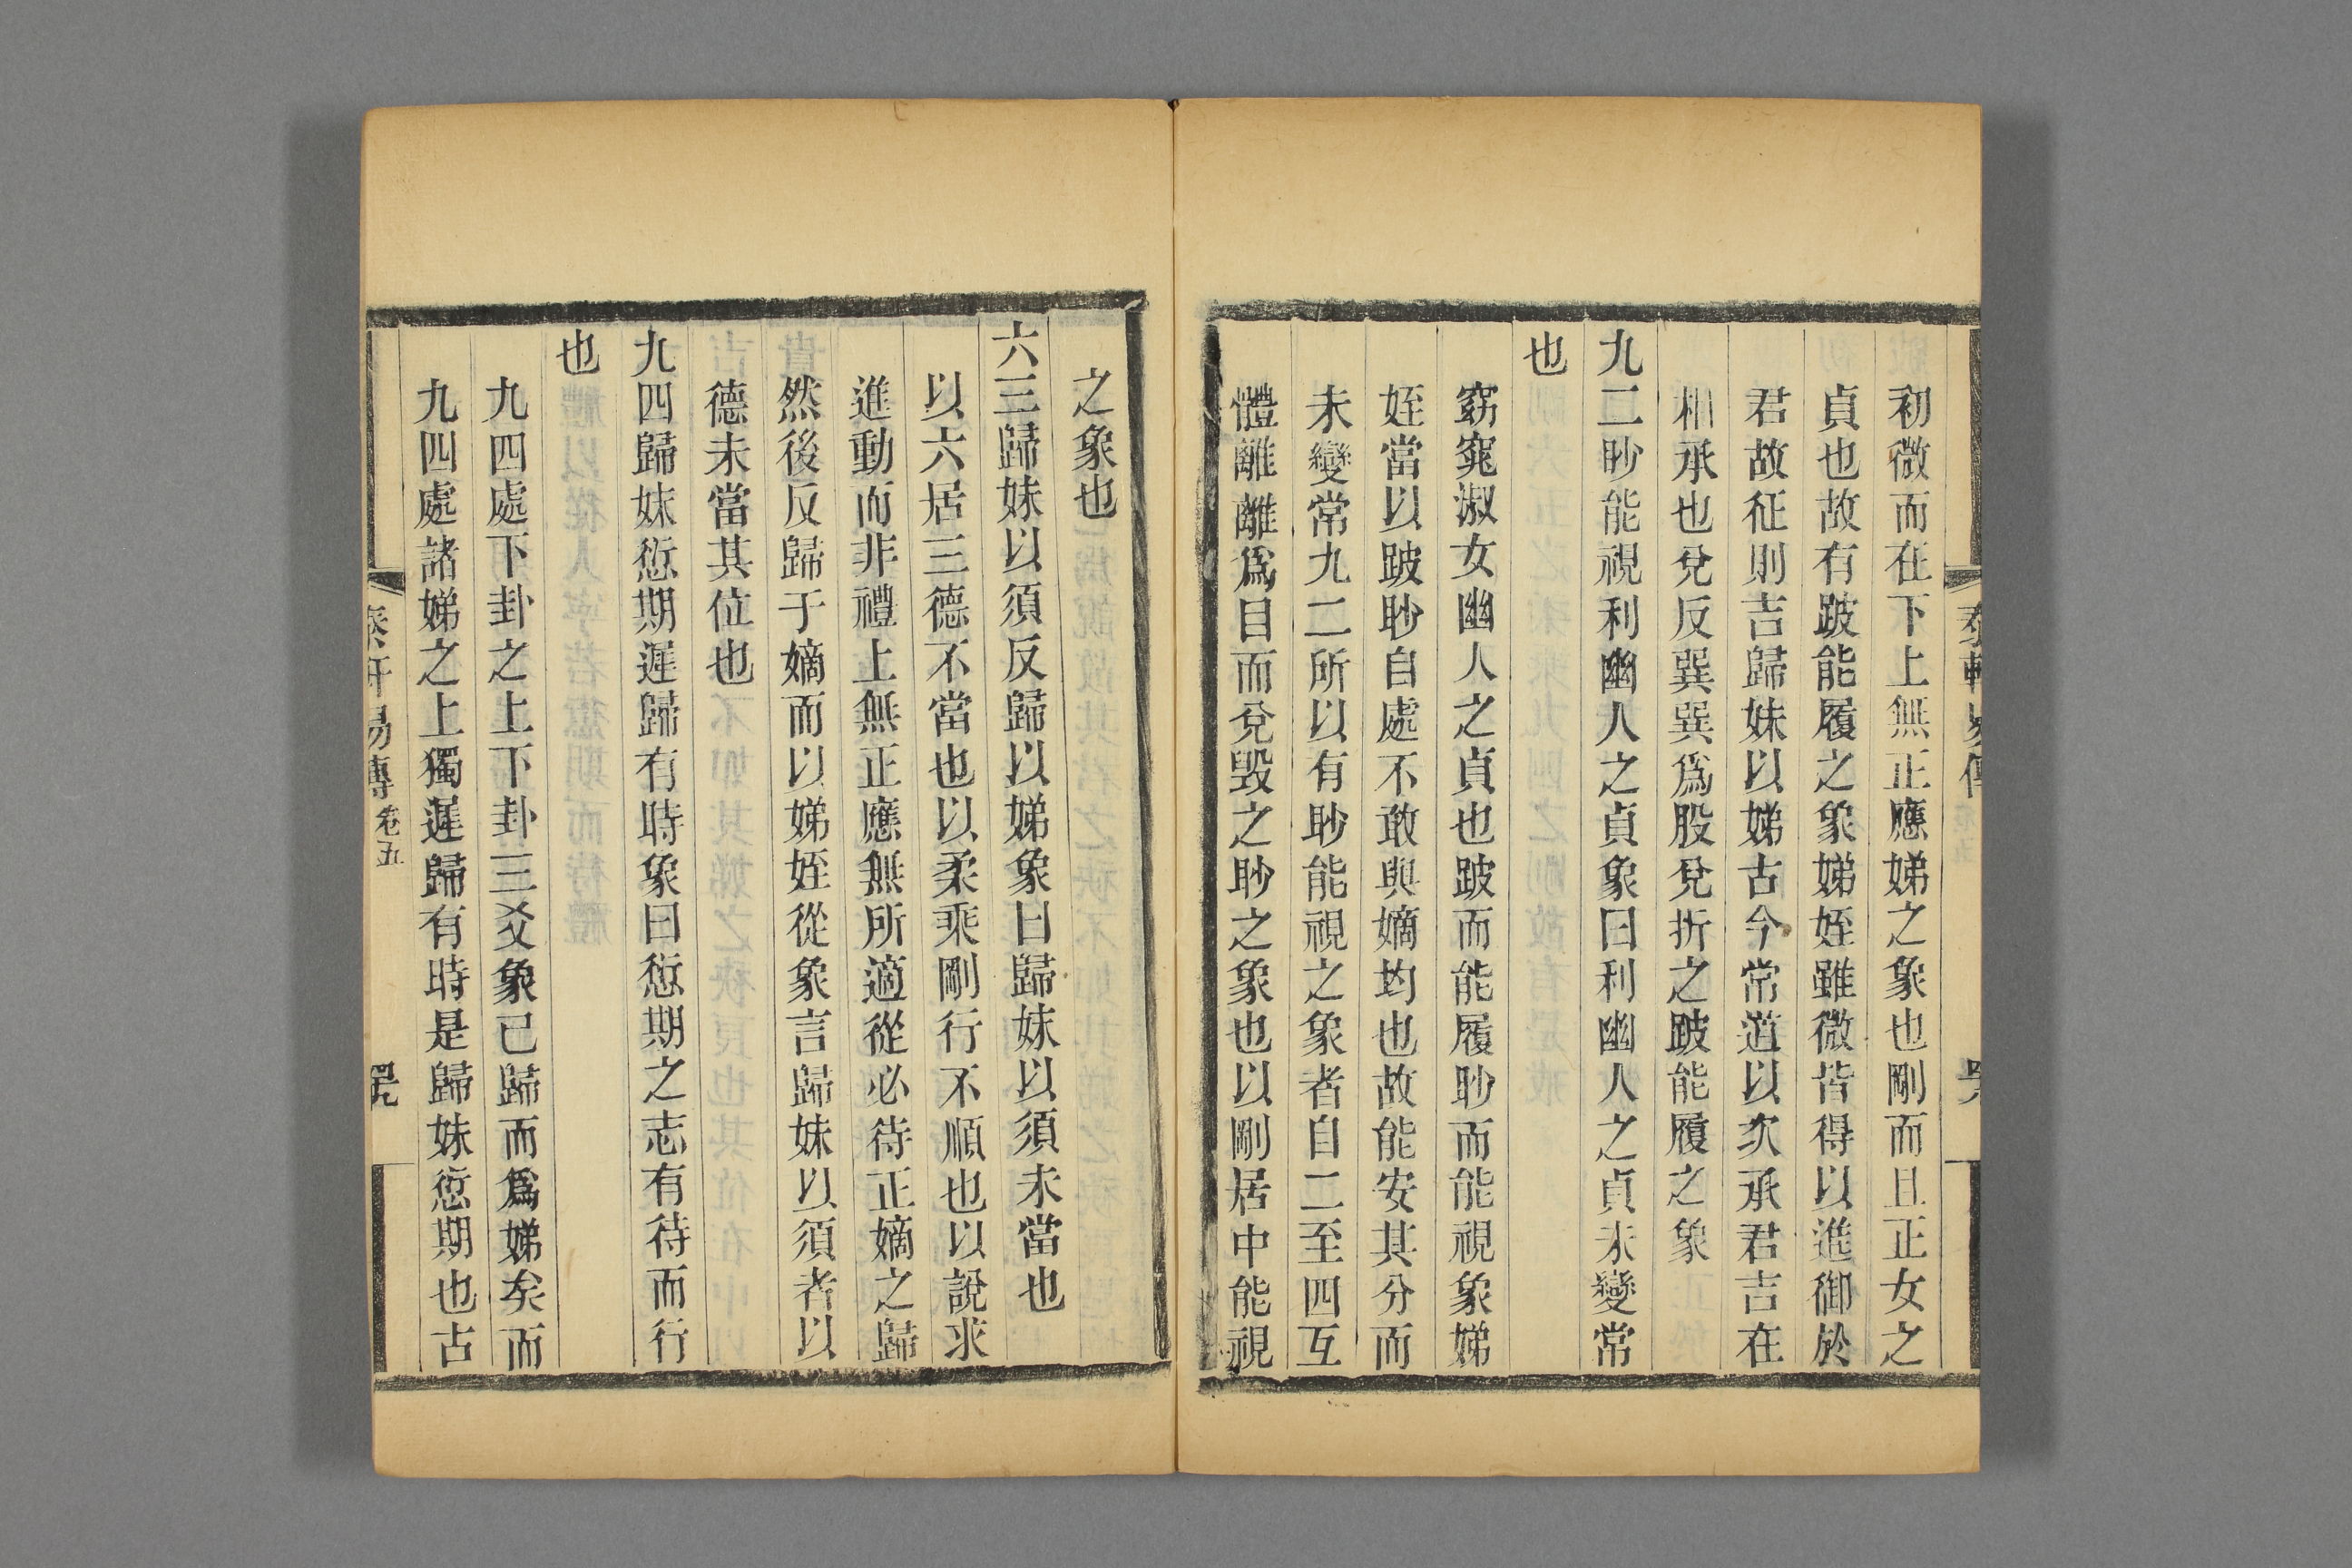 初微而在下上無正應娣之象也剛而且正女之
貞也故有跛能履之象娣姪雖微皆得以進御於
君故征則吉歸妹以娣古今常道以次承君吉在
相承也兌反巽巽爲股兌折之跛能履之象
九二眇能視利幽人之貞象曰利幽人之貞未變常
也
窈窕淑女幽人之貞也跛而能履眇而能視象娣
姪當以跛眇自處不敢與嫡均也故能安其分而
未變常九二所以有眇能視之象者自二至四互
體離離爲目而兌毀之眇之象也以剛居中能視
之象也
六三歸妹以須反歸以娣象曰歸妹以須未當也
以六居三德不當也以柔乘剛行不順也以說求
進動而非禮上無正應無所適從必待正嫡之歸
然後反歸于嫡而以娣姪從象言歸妹以須者以
德未當其位也
九四歸妹愆期遲歸有時象曰愆期之志有待而行
也
九四處下卦之上下卦三爻象已歸而爲娣矣而
九四處諸娣之上獨遲歸有時是歸妹愆期也古
易傳 卷五